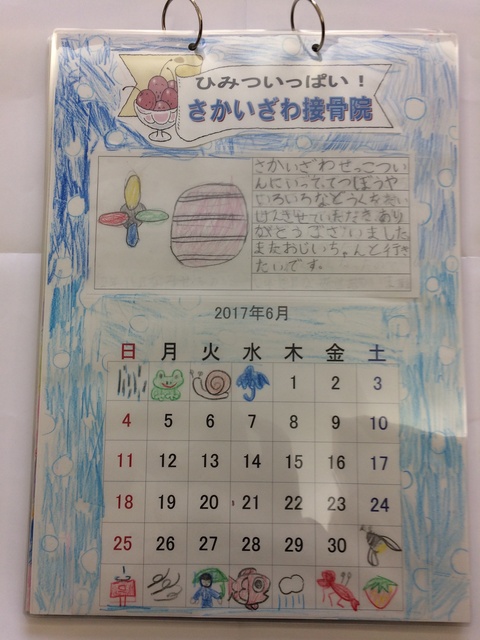 ひみついっぱい！
さかいざわ接骨院
さかいざわせっこつい
んにいっててつぼうや
いろいろなどうぐを
がとうございました
またおじいちゃんと行き
たいです。
2017年6月
日 月 火 水 木 金 土
1 2 3
4 5 6 7 8 9 10
11 12 13 14 15 16 17
18 19 20 21 22 23 24
25 26 27 28 29 30